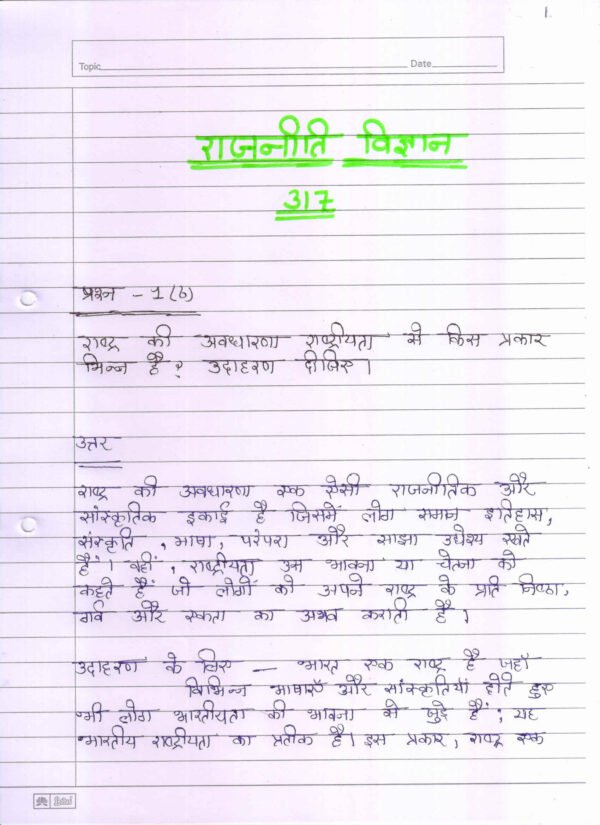 1.
Topic Date
राजनीति विज्ञान
317
प्रश्न - 1(b)
राष्ट्र की अवधारणा राष्ट्रीयता से किस प्रकार
भिन्न है? उदाहरण दीजिए।
उत्तर
राष्ट्र की अवधारणा एक ऐसी राजनीतिक और
सांस्कृतिक इकाई है जिसमें लोग समान इतिहास,
संस्कृति, भाषा, परंपरा और साझा उद्येश्य रखते
हैं। वहीं, राष्ट्रीयता उस भावना या चेतना को
कहते हैं जो लोगों को अपने राष्ट्र के प्रति निष्ठा,
गर्व और एकता का अभव कराती है।
उदाहरण के लिए — भारत एक राष्ट्र है जहाँ
विभिन्न भाषाएँ और सांस्कृतियां होते हुए
भी लोग भारतीयता की भावना से जुड़े हैं; यह
भारतीय राष्ट्रीयता का प्रतीक है। इस प्रकार, राष्ट्र एक